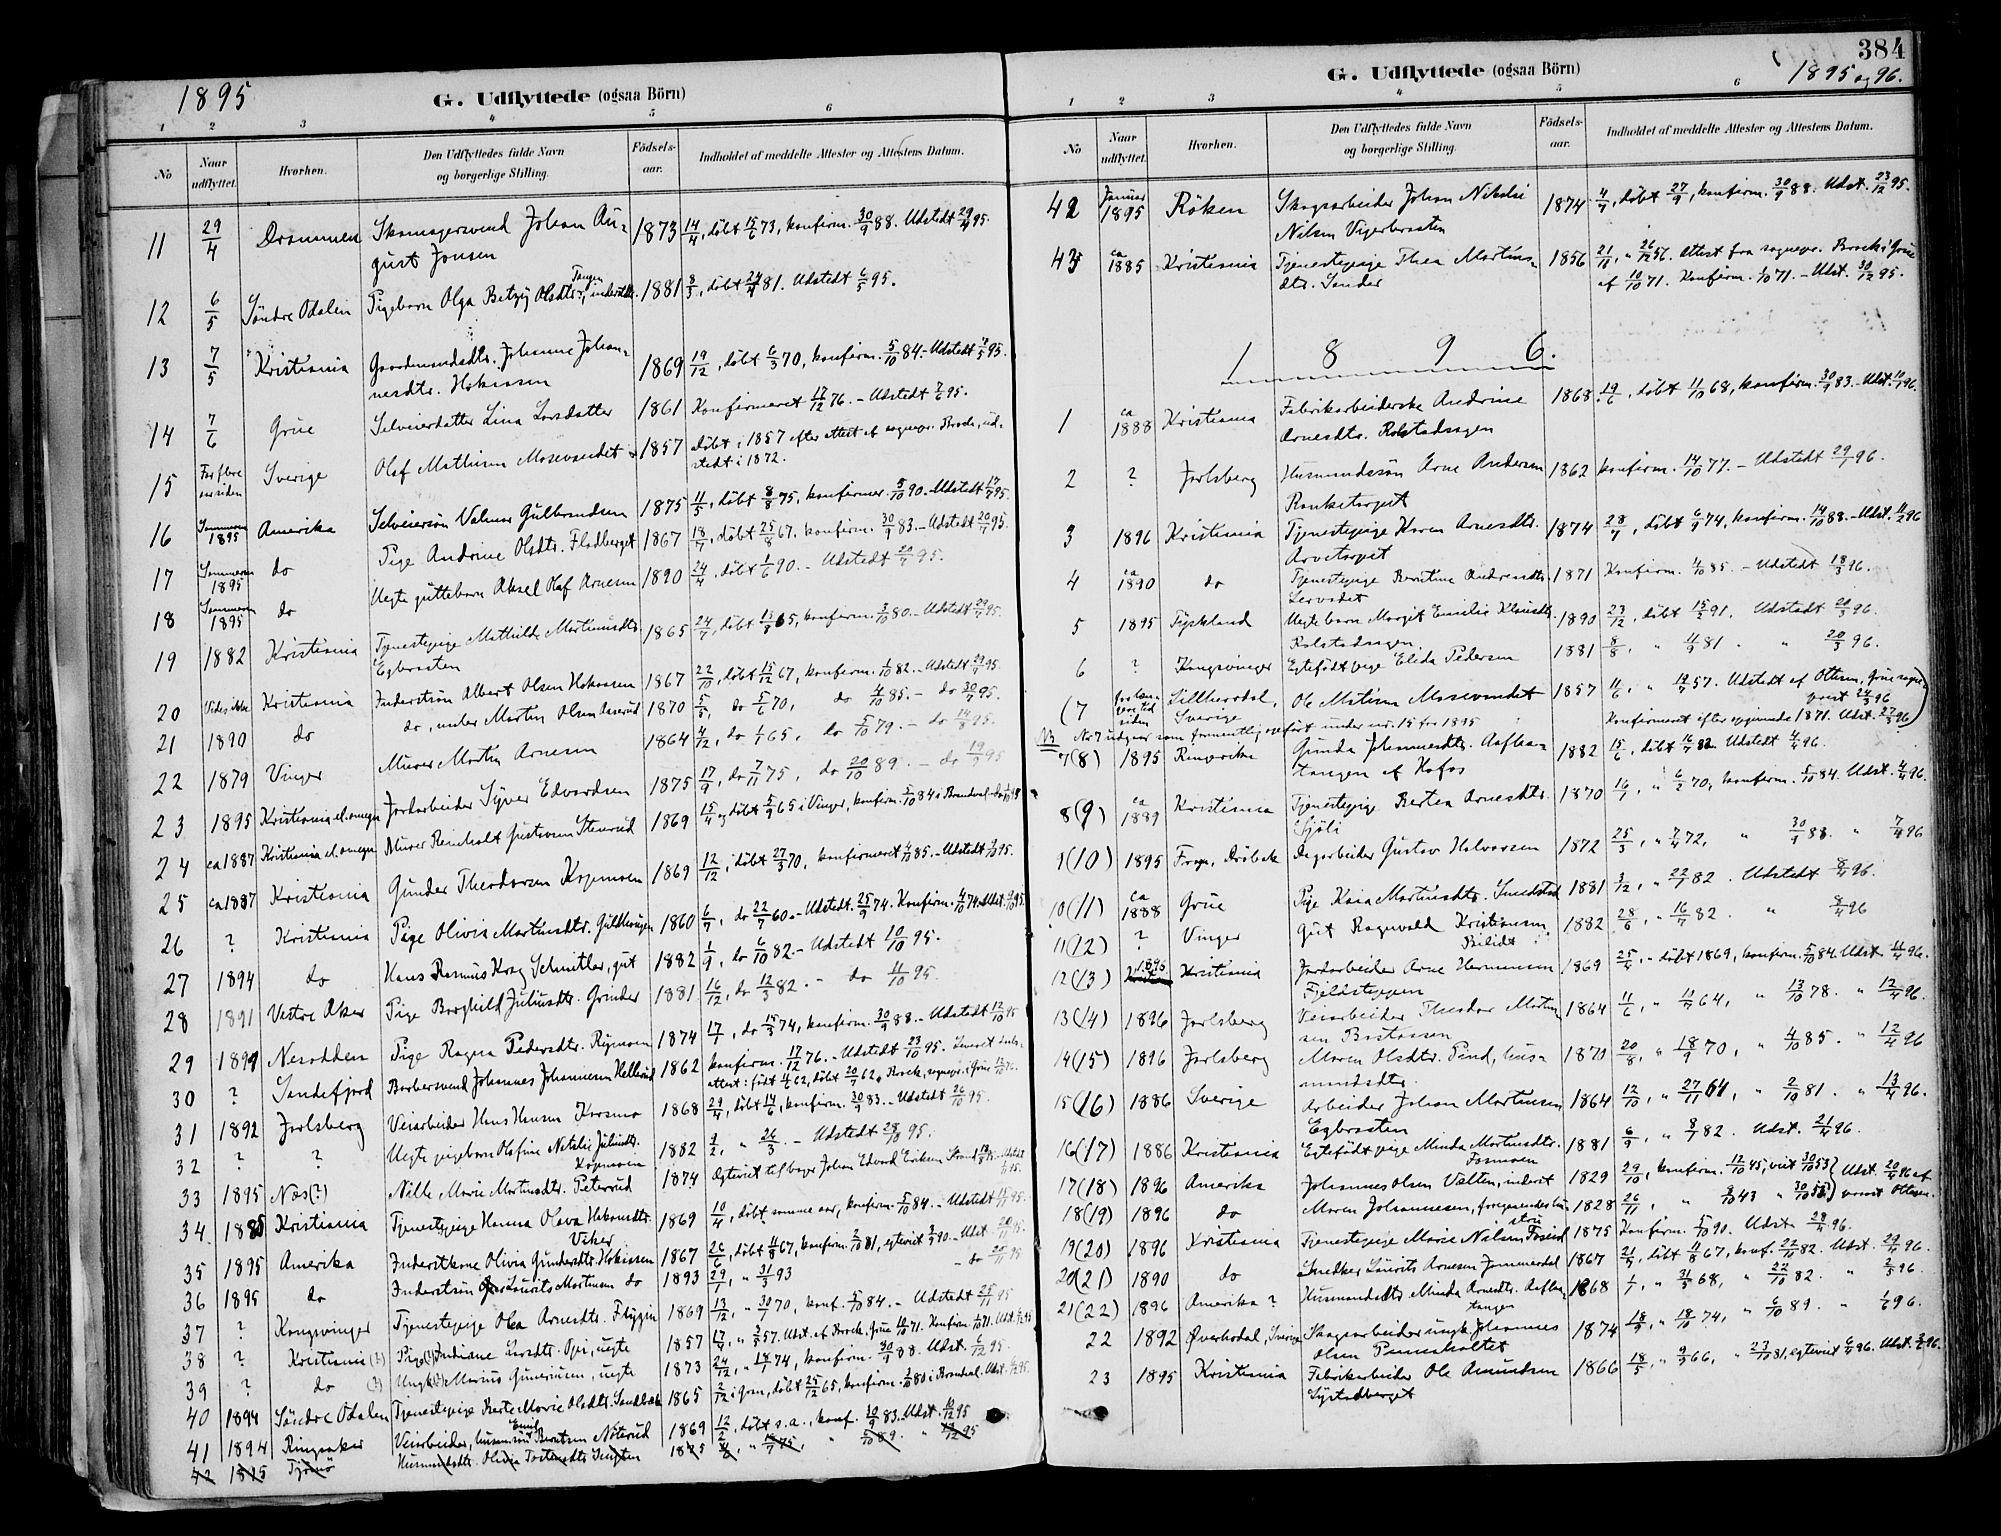 1895
G. Udflyttede (ogsaa Börn)
1 2 3 4 5 6
No
Naar udflyttet.
Hvorhen.
Den Udflyttedes fulde Navn og borgerlige Stilling.
Födsels-aar.
Indholdet af meddelte Attester og Attestens Datum.
11 29/4 Drammen Skomagersvend Johan Au- 1873 14/4, döbt 15/6 73, konfirm. 30/9 88. Udstedt 29/4 95.
gust Jonsen
12 6/5 Söndre Odalen Pigebarn Olga Betzy Olsdtr. 1881 döbt 24/4 81. Udstedt 6/5 95.
13 7/5 Kristiania Gaardmandsdtr. Johanne Johan- 1869 19/12, döbt 6/3 70, konfirm. 5/10 84. - Udstedt 7/5 95.
nesdtr. Hokaasen
14 7/6 Grue Selveierdatter Lina Larsdatter 1861 Konfirmeret 17/12 76. - Udstedt 7/6 95.
15 For flere aar siden Sverige Olaf Mathisen Mosevandet 1857 Döbt i 1857 efter attest af sognepr. Brock, ud-
stedt i 1872.
16 Sommeren 1895 Amerika Selveiersön Valmar Gulbrandsen 1875 11/5, döbt 8/8 75, konfirmer. 5/10 90. Udstedt 17/7 95.
17 Sommeren 1895 do Pige Andrine Olsdtr. Flodberget 1867 18/7, döbt 25/8 67, konfirm. 30/9 83. - Udstedt 20/7 95.
18 Sommeren 1895 do Uegte guttebarn Aksel Olaf Arnesen 1890 24/4, döbt 1/6 90. - Udstedt 20/7 95.
19 1882 Kristiania Tjenestepige Mathilde Martinusdtr. 1865 24/7, döbt 13/8 65, konfirm. 3/10 80. - Udstedt 29/7 95.
Egbraaten
20 Vides ikke Kristiania Inderstsön Albert Olsen Hokaasen 1867 22/10, döbt 15/12 67, konfirm. 1/10 82. - Udstedt 29/7 95.
21 1890 do do, murer Martin Olsen Aaserud 1870 5/5, do 5/6 70, do 4/10 85. - do 30/7 95.
22 1879 Vinger Murer Martin Arnesen 1864 4/12, do 1/1 65, do 5/10 79. - do 14/8 95.
23 1895 Kristiania el. omegn Jordarbeider Syver Edvardsen 1875 17/9, do 7/11 75, do 20/10 89. - do 19/9 95
24 ca 1887 Kristiania el. omegn Murer Reinholt Gustavsen Stenrud 1869 15/4 og döbt 5/9 65 i Vinger, konfirm. 5/10 84 i Brandval.
25 ca 1887 Kristiania Gunder Theodorsen Kopmoen 1869 12/12, döbt 27/3 70, konfirmeret 4/10 85. - Udstedt 2/10 95.
26 ? Kristiania Pige Olivia Martinusdtr. Guldhaugen 1860 6/7, do 22/7 60. - Udstedt. 25/9 74. Konfirm. 4/10 74.
27 1894 do Hans Rasmus Krag Schnitler, gut 1882 1/9, do 6/10 82. - Udstedt 10/10 95.
28 1891 Vestre Aker Pige Borghild Juliusdtr. Grinder 1881 16/12, do 12/3 82. - do 11/10 95.
29 1894 Nesodden Pige Ragna Pedersdtr. Rymoen 1874 17/1, do 15/3 74, konfirm. 30/9 88. - Udstedt 12/10 95
30 ? Sandefjord Barbersvend Johannes Johannesen Hellerud 1862 konfirm. 17/12 76. - Udstedt 23/10 95.
attest: födt 4/6 62, döbt 20/7 62, Brock, sognepr. i Grue
31 1892 Jarlsberg Veiarbeider Hans Hansen Kosmo 1868 29/4, döbt 14/6, konfirm. 30/9 83. - Udstedt 26/10 95.
32 ? ? Uegte pigebarn Olefine Natalie Juliusdtr. 1882 2/2, " 26/3. - Udstedt 28/10 95.
Kopmoen
33 1895 Næs(?) Nille Marie Martinusdtr. Peterrud 1874 Egteviet til bager Johan Edvard Eriksen
34 1885 Kristiania Tjenestepige Hanna Olava Haavaldsdtr. 1869 10/4, döbt samme aar, konfirm. 5/10 84. - Udstedt 15/11 95.
Viker
35 1895 Amerika Inderstkone Olivia Gundersdtr. Hokaasen 1867 26/6, döbt 11/8 67, konfirm. 2/10 81, egteviet 3/3 90. - Udst. 20/11 95.
36 1895 do Inderstsön Laurits Martinsen do 1893 29/1, " 31/3 93 - do 20/11 95
37 ? Kongsvinger Tjenestepige Olea Arnesdtr. Flygin 1869 13/12, " 30/1 70, konf. 5/10 84. - Udstedt 25/11 95
38 ? Kristiania (?) Pige(?) Indiane Larsdtr. Opi, uegte 1857 17/4, " 3/5 57. Udst. af Brock, Grue 10/10 71. Konfirm. 1/10 71.
39 ? do (?) Ungk(?) Marius Gunerusen, uegte 1873 24/12, " 18/1 74, konfirm. 30/9 88. Udst. 6/12 95.
40 1894 Söndre Odalen Tjenestepige Berte Marie Olsdtr. Sandbak 1865 2/12 i Gran, döbt 25/12 65, konfirm. 3/10 80 i Brandval.
41 1894 Ringsaker Veiarbeider, husmandssön Emil Berntsen Nöterud 1869 12/2, döbt s.a., konf. 30/9 83. Udst. 10/12 95
42 1895 Tjömö Husmandsdtr. Olivia Torstensdtr. 1875 5/10 89. " 12/12 95
384
G. Udflyttede (ogsaa Börn)
1895 og 96.
1 2 3 4 5 6
No
Naar udflyttet.
Hvorhen.
Den Udflyttedes fulde Navn og borgerlige Stilling.
Födsels-aar.
Indholdet af meddelte Attester og Attestens Datum.
42 Januar 1895 Röken Skogsarbeider Johan Nikolai 1874 4/7, döbt 27/9, konfirm. 30/9 88. Udst. 23/12 95.
Nilsen Vigerbraaten
43 ca 1885 Kristiania Tjenestepige Thea Martins- 1856 21/11, " 26/12 56. Attest fra sognepr. Brock i Grue
dtr. Sander af 10/10 71. Konfirm. 1/10 71. - Udst. 30/12 95.
1 8 9 6.
1 ca 1888 Kristiania Fabrikarbeiderske Andrine 1868 19/6, döbt 11/10 68, konfirm. 30/9 83. - Udst. 10/1 96.
Arnesdtr. Rolstadsagen
2 ? Jarlsberg Husmandssön Arne Andersen 1862 konfirm. 14/10 77. - Udstedt 29/1 96.
Ranketorpet
3 1896 Kristiania Tjenestepige Karen Arnesdtr. 1874 28/7, döbt 6/9 74, konfirm. 14/10 88. - Udst. 11/2 96
Arvetorpet
4 ca 1890 do Tjenestepige Berntine Andreasdtr. 1871 Konfirm. 4/10 85. - Udstedt 18/3 96.
5 1895 Tyskland Uegte barn Margit Emilie Klausdtr. 1890 23/12, döbt 15/2 91. Udstedt 20/3 96.
Rolstadsagen
6 ? Kongsvinger Egtefödt pige Elida Pedersen 1881 8/8, " 11/9 81 " " 20/3 96.
(7 for længere tid siden Lillherrdal, Sverige Ole Matisen Mosevandet 1857 11/6, " 19/7 57. Udstedt af Ottesen, Grue sogne-
prest 24/3 96
NB No 7 udgaar som formentlig opfört under nr. 15 for 1895 Konfirmeret efter opgivende 1871. Udst. 27/3 96)
7(8) 1895 Ringerike Gunda Johannesdtr. Aafloa- 1882 15/6, döbt 16/7 82. Udstedt 4/4 96.
tangen af Kafos
8(9) ca 1889 Kristiania Tjenestepige Bertea Arnesdtr. 1870 16/1, " 6/2 70, konfirm. 5/10 84. Udst. 4/4 96.
Sjöli
9(10) 1895 Frogn, Dröbak Dagarbeider Gustav Halvorsen 1872 25/3, " 7/4 72, " 30/9 88. " 7/4 96
10(11) ca 1888 Grue Pige Kaia Martinusdtr. Smedstad 1881 3/12, " 22/1 82. Udstedt 8/4 96.
11(12) ? Vinger Gut Ragnvald Kristiansen 1882 28/6, " 16/7 82. " 8/4 96
Bilidt
12(13) 1895 Kristiania Jordarbeider Arne Hermansen 1869 25/4, - döbt 1869, konfirm. 5/10 84. Udst. 11/4 96.
Fjeldsteppen
13(14) 1896 Jarlsberg Veiarbeider Theodor Martin- 1864 11/6, " 11/7 64, " 13/10 78. " 12/4 96.
sen Bastaasen
14(15) 1896 Jarlsberg Maren Olsdtr. Pind, hus- 1870 20/8, " 18/9 70, " 4/10 85. " 12/4 96
mandsdtr.
15(16) 1886 Sverige Arbeider Johan Martinsen 1864 12/10, " 27/11 64, " 2/10 81. " 13/4 96.
Egbraaten
16(17) 1886 Kristiania Egtefödt pige Minda Martinsdtr. 1881 6/9, " 8/1 82. Udst. 21/4 96.
Fosmoen
17(18) 1896 Amerika Johannes Olsen Valten, inderst 1829 29/10, konfirm. 12/10 45, viet 30/10 53 } Udst. 20/4 96 af
18(19) 1896 do Maren Johannesen, foregaaendes hus- 1828 26/11, " 8/10 43 " 30/10 53 } prost Ottesen.
stru
19(20) 1896 Kristiania Tjenestepige Marie Nilsen Foseid 1875 Konfirm. 5/10 90. Udst. 28/4 96.
20(21) 1890 do Snedker Laurits Arnesen Jammerdal 1867 21/4, döbt 11/8 67, konf. 22/10 82. Udst. 29/4 96.
21(22) 1896 Amerika ? Husmandsdtr. Minda Arnesdtr. Aafloa- 1868 1/1, " 2/3 68, " 22/10 82. " 2/5 96.
tangen
22 1892 Øvrehodal, Sverige Skogsarbeider ungk. Johannes 1874 18/9, " 18/10 74, " 6/10 89. " 1/6 96.
Olsen
23 1895 Kristiania Fabrikarbeider Ole Amundsen 1866 18/5, " 9/9 66, " 23/10 81, egteviet 6/4 96. Udst. 3/6 96.